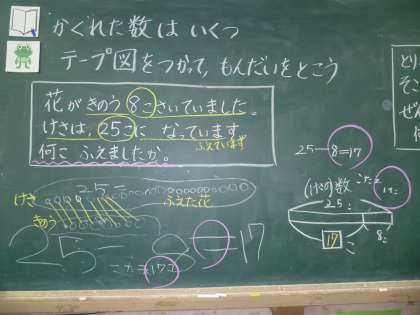 かくれた数はいくつ
テープ図をつかって、もんだいをとこう
花がきのう8こさいていました。
けさは、25こになっています
ふえています
何こふえましたか。
25-8=17
25こ
けさ
きのう
ふえた花
25-8=17
こたえ17こ
こたえ
17こ
数
25こ
17こ
8こ
とり
そこ
ぜん